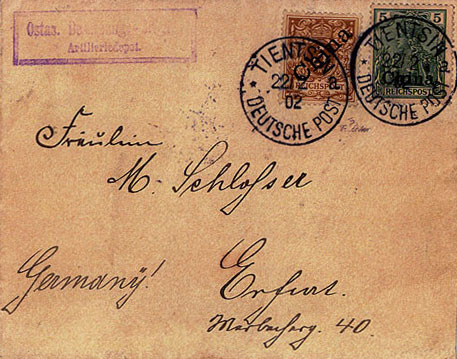 Ostas.
Artilleriedepot.
China
REICHSPOST
TIENTSIN
22/2 a
02
DEUTSCHE POST
5 5
China
REICHSPOST
TIENTSIN
22/2 a
DEUTSCHE POST
Fräulein
M. Schlosser
Germany!
Erfurt.
40.